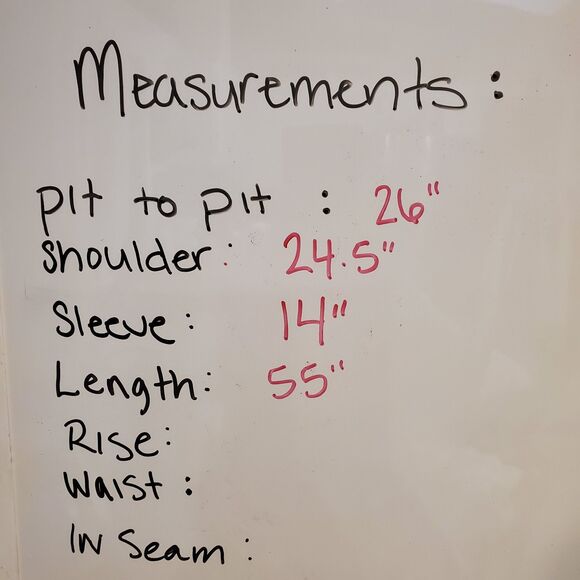 Measurements :
pit to pit : 26"
Shoulder: 24.5"
Sleeve: 14"
Length: 55"
Rise:
Waist:
In Seam: